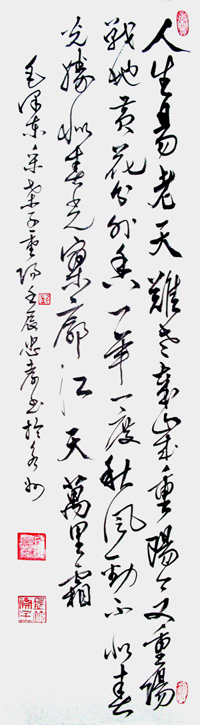 人生易老天難老歲歲重陽今又重陽
戰地黃花分外香一年一度秋風勁不似春
光勝似春光寥廓江天萬里霜
毛澤東采桑子重陽壬辰忠孝书於